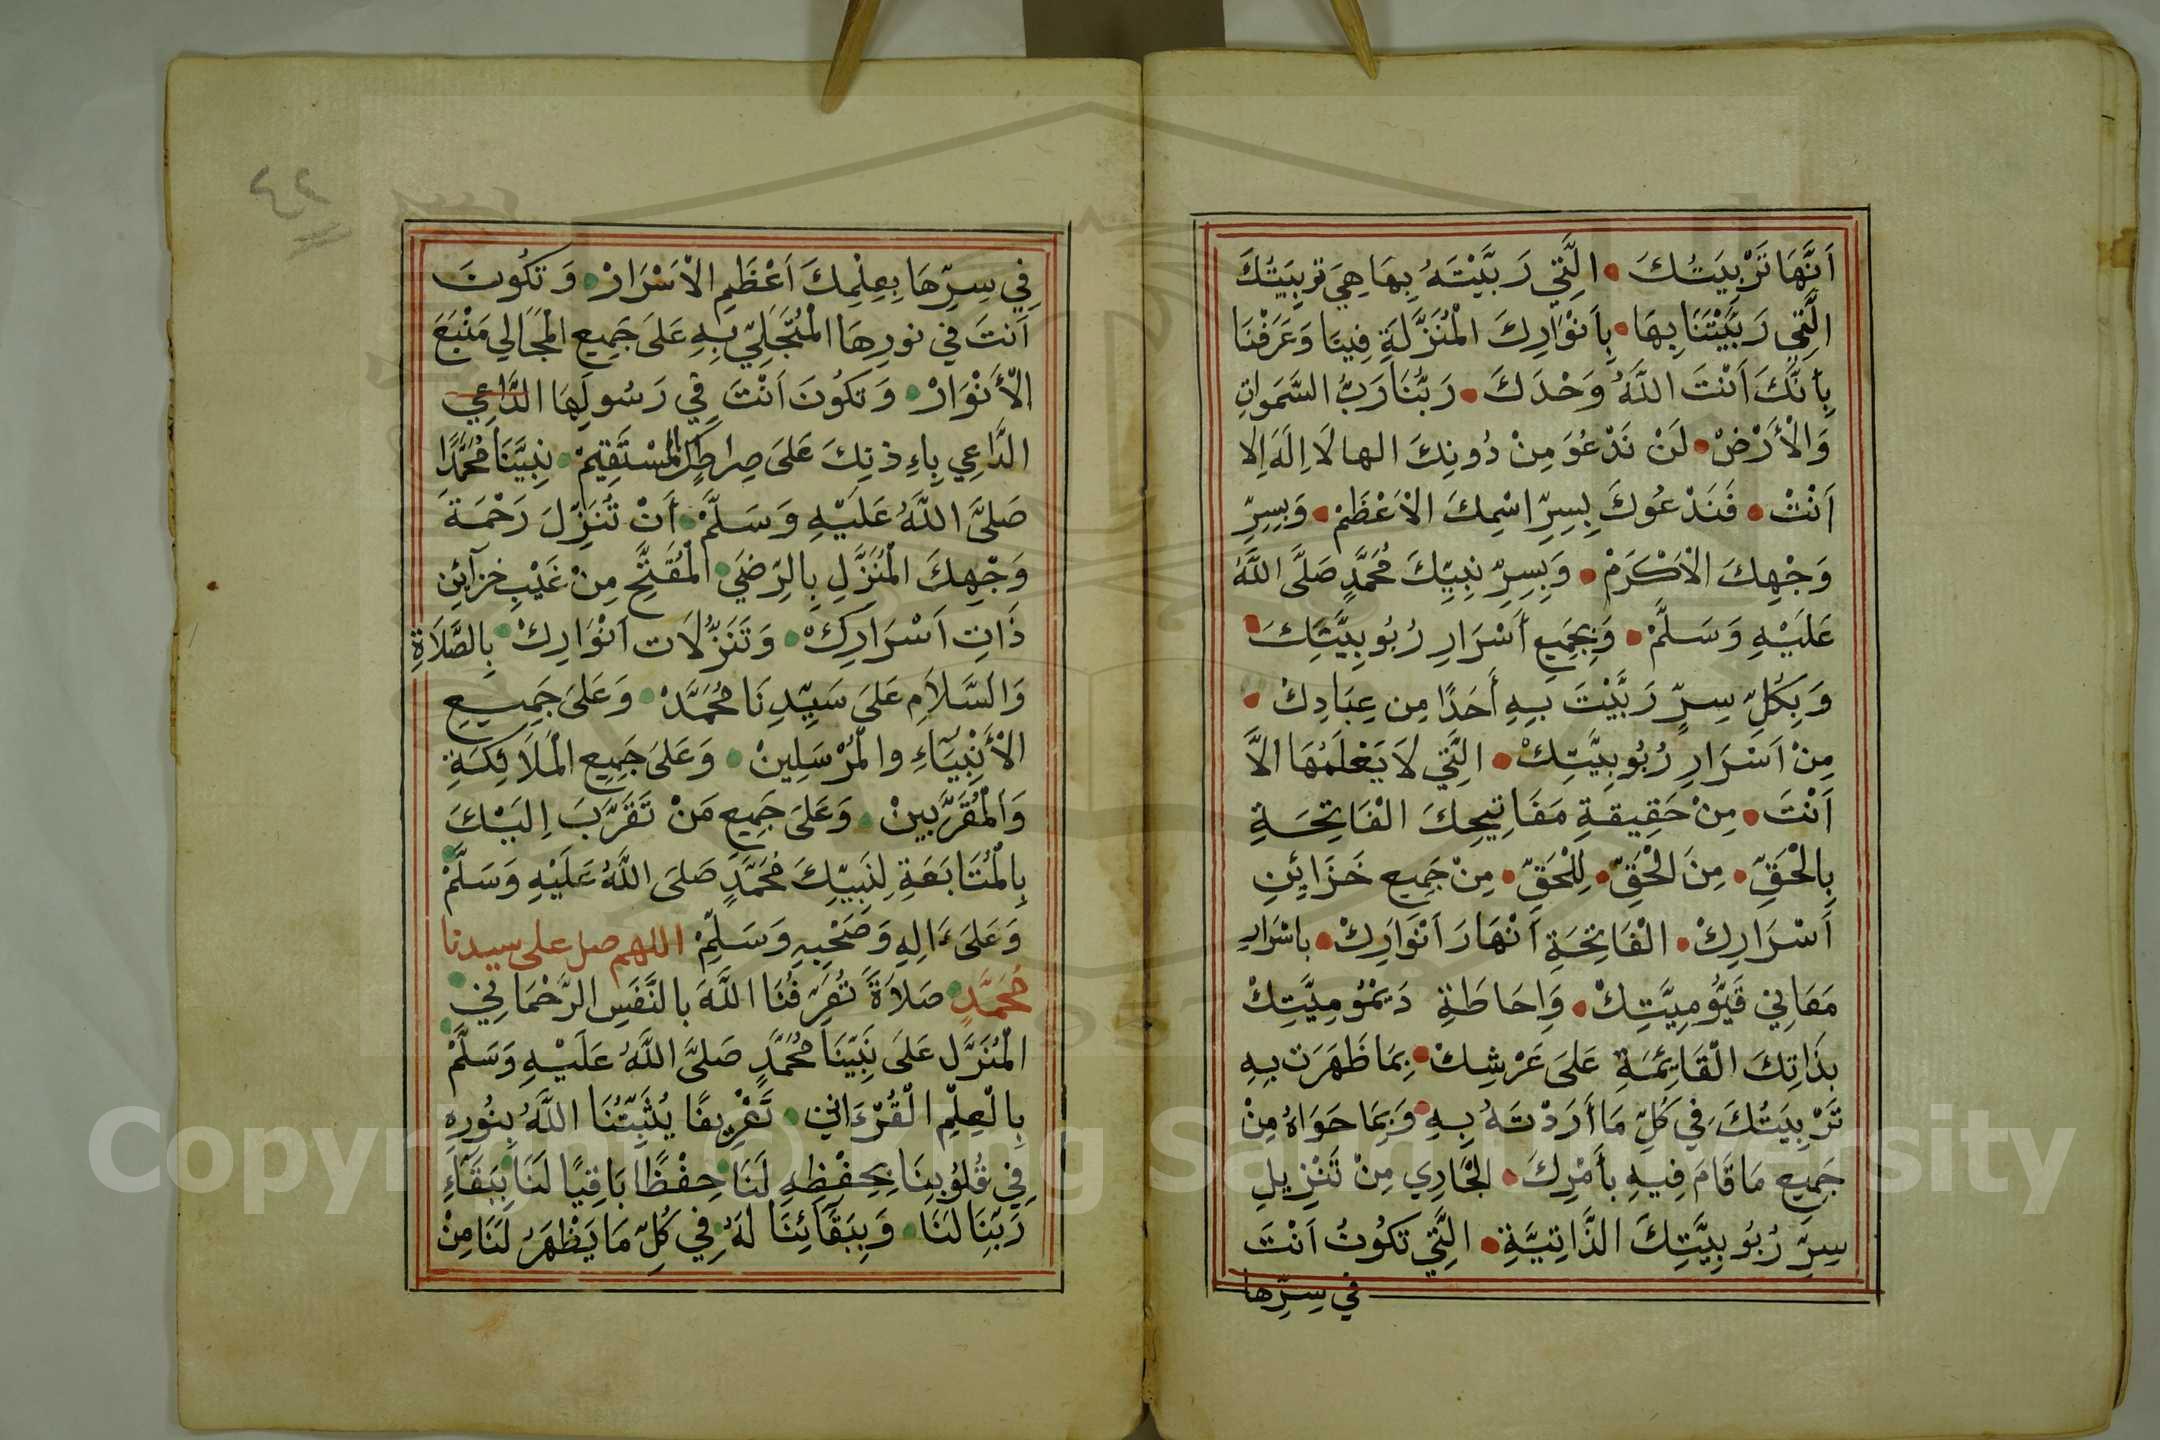 اَنَّهَا تَرْبِيَتُكَ • الَّتِي رَبَّيْتَهُ بِهَا هِيَ تَرْبِيَتُكَ
الَّتِي رَبَّيْتَنَا بِهَا • بِاَنْوَارِكَ الْمُنَزَّلَةِ فِينَا وَعَرَفْنَا
بِأَنَّكَ اَنْتَ اللَّهُ وَحْدَكَ • رَبُّنَا رَبُّ السَّمَوَاتِ
وَالْأَرْضْ • لَنْ نَدْعُوَ مِنْ دُونِكَ الها لَا اِلَهَ اِلا
اَنْتْ • فَنَدْعُوكَ بِسِرِّ اسْمِكَ الْاَعْظَمْ • وَبِسِرِّ
وَجْهِكَ الْاَكْرَمْ • وَبِسِرِّ نَبِيِّكَ مُحَمَّدٍ صَلَّى اللَّهُ
عَلَيْهِ وَسَلَّمْ • وَبِجَمِيعِ أَسْرَارِ رُبُوبِيَّتِكَ •
وَبِكُلِّ سِرٍّ رَبَّيْتَ بِهِ أَحَدًا مِن عِبَادِكْ •
مِنْ اَسْرَارِ رُبُوبِيَّتِكْ • الَّتِي لَا يَعْلَمُهَا الَّا
اَنْتَ • مِنْ حَقِيقَةِ مَفَاتِيحِكَ الْفَاتِحَةِ
بِالْحَقِّ • مِنَ الْحَقِّ • لِلْحَقِّ • مِنْ جَمِيعِ خَزَائِنِ
أَسْرَارِكْ • الْفَاتِحَةِ اَنْهَارَ اَنْوَارِكْ • بِاسْرَارِ
مَعَانِي قَيُّومِيَّتِكْ • وَاِحَاطَةِ دَيْمُومِيَّتِكْ
بِذَاتِكَ الْقَائِمَةِ عَلَى عَرْشِكْ • بِمَا ظَهَرَت بِهِ
تَرْبِيَتُكَ فِي كُلِّ مَا أَرَدْتَهُ بِهِ • وَبِمَا حَوَاهُ مِنْ
جَمِيعِ مَا قَامَ فِيهِ بِأَمْرِكَ • الْجَارِي مِنْ تَنْزِيلِ
سِرِّ رُبُوبِيَّتِكَ الذَّاتِيَّةِ • الَّتِي تَكُونُ اَنْتَ
فِي سِرِّهَا
٤٢
فِي سِرِّهَا بِعِلْمِكَ اَعْظَمِ الْاَسْرَارْ • وَتَكُونَ
اَنتَ فِي نورِهَا الْمُتَجَلِّي بِهِ عَلَى جَمِيعِ الْمَجَالِي مَنْبَعَ
الْأَنْوَارْ • وَتَكُونَ اَنْتَ فِي رَسُولِهَا الدَّاعِي
الدَّاعِي بِاِذنِكَ عَلَى صِرَاطِكَ الْمُسْتَقِيمْ • نَبِيِّنَا مُحَمَّدًا
صَلَّى اللَّهُ عَلَيْهِ وَسَلَّمْ • أَنْ تُنَزِّلَ رَحْمَةَ
وَجْهِكَ الْمُنَزَّلِ بِالرِّضَى • الْمُفَتَّحِ مِنْ غَيْبِ خزآئِنِ
ذَاتِ اَسْرَارِكَ • وَتَنَزُّلَات اَنْوَارِكْ • بِالصَّلَاةِ
وَالسَّلَامِ عَلَى سَيِّدِنَا مُحَمَّدْ • وَعَلَى جَمِيعِ
الْأَنْبِيَآءِ والْمُرْسَلِينْ • وَعَلَى جَمِيعِ الْمَلَائِكَةِ
وَالْمُقَرَّبِينْ • وَعَلَى جَمِيعِ مَنْ تَقَرَّبَ اِلَيْكَ
بِالْمُتَابَعَةِ لِنَبِيِّكَ مُحَمَّدٍ صَلَى اللَّهُ عَلَيْهِ وَسَلَّمْ
وَعَلَى ءَالِهِ وَصَحْبِهِ وَسَلِّمْ اللهم صل على سيدنا
مُحَمَّدٍ • صَلَاةً تُعَرِّفُنَا اللَّهَ بالنَّفَسِ الرَّحْمَانِي •
الْمُنَزَّل عَلَى نَبِيِّنَا مُحَمَّدٍ صَلَّى اللَّهُ عَلَيْهِ وَسَلَّمْ •
بِالْعِلْمِ الْقُرْءَانِي • تَعْرِيفًا يُثَبِّتُنَا اللَّهُ بِنُورِهِ
فِي قُلُوبِنَا بِحِفْظِهِ لَنَا • حِفْظًا بَاقِيًا لَنَا • بِبَقَآءِ
رَبِّنَا لَنَا • وَبِبَقَآئِنَا لَهُ • فِي كُلِّ مَا يَظْهَرُ لَنَا مِنْ
Copyright © King Saud University